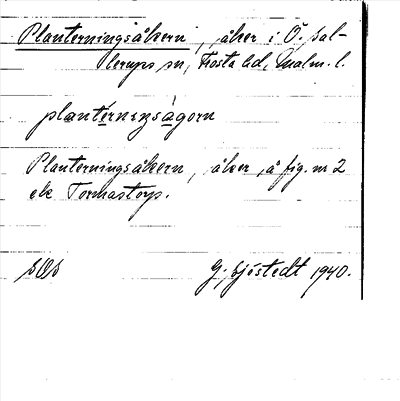 Planterningsåkern, åker i Ö. Sal-
lerups sn, Frosta hd, Malm. l.
plantérnıŋsågorn
Planterningsåkern, åker å fig. nr 2
Tormastorp.
G. Sjöstedt 1940.